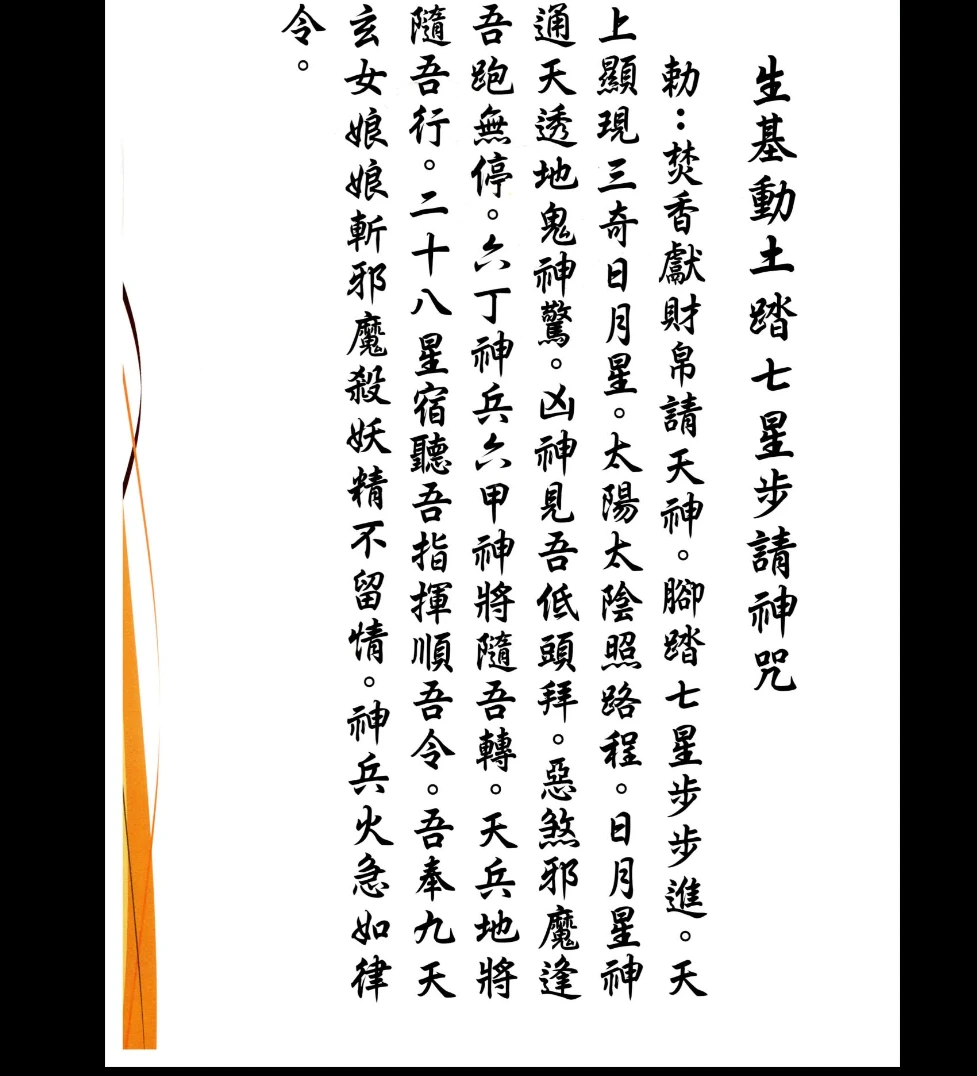 生基動土踏七星步請神咒
勅：焚香獻財帛請天神。腳踏七星步步進。天
上顯現三奇日月星。太陽太陰照路程。日月星神
通天透地鬼神驚。凶神見吾低頭拜。惡煞邪魔逢
吾跑無停。六丁神兵六甲神將隨吾轉。天兵地將
隨吾行。二十八星宿聽吾指揮順吾令。吾奉九天
玄女娘娘斬邪魔殺妖精不留情。神兵火急如律
令。